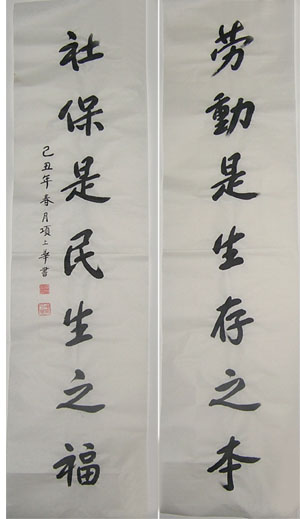 劳動是生存之本
社保是民生之福
己丑年春月项上華書